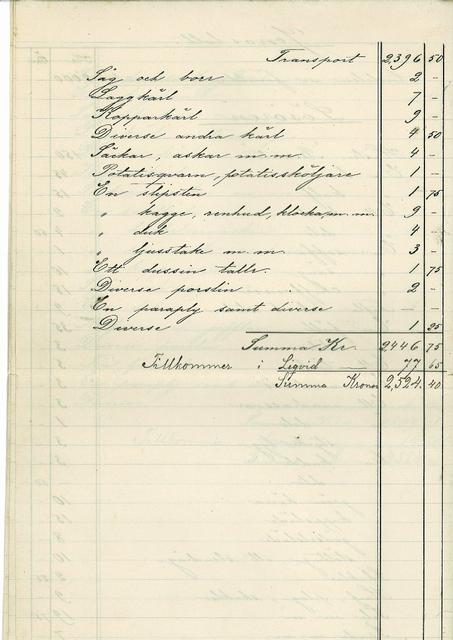 Transport 2,396 50
Såg och borr 2 –
Laggkärl 7 –
Kopparkärl 9 –
Diverse andra kärl 4 50
Säckar, askar m. m. 4 –
Potatisqvarn, potatissköljare 1 –
En slipsten 1 75
" kagge, renhud, klocka, m. m. 9 –
" duk 4 –
" ljusstake m. m. 3 –
Ett dussin tallr. 1 75
Diverse porslin 2 –
En paraply samt diverse — –
Diverse 1 25
Summa Kr. 2446 75
Tillkommer i Liqvid 77 65
Summa Kronor 2,524. 40